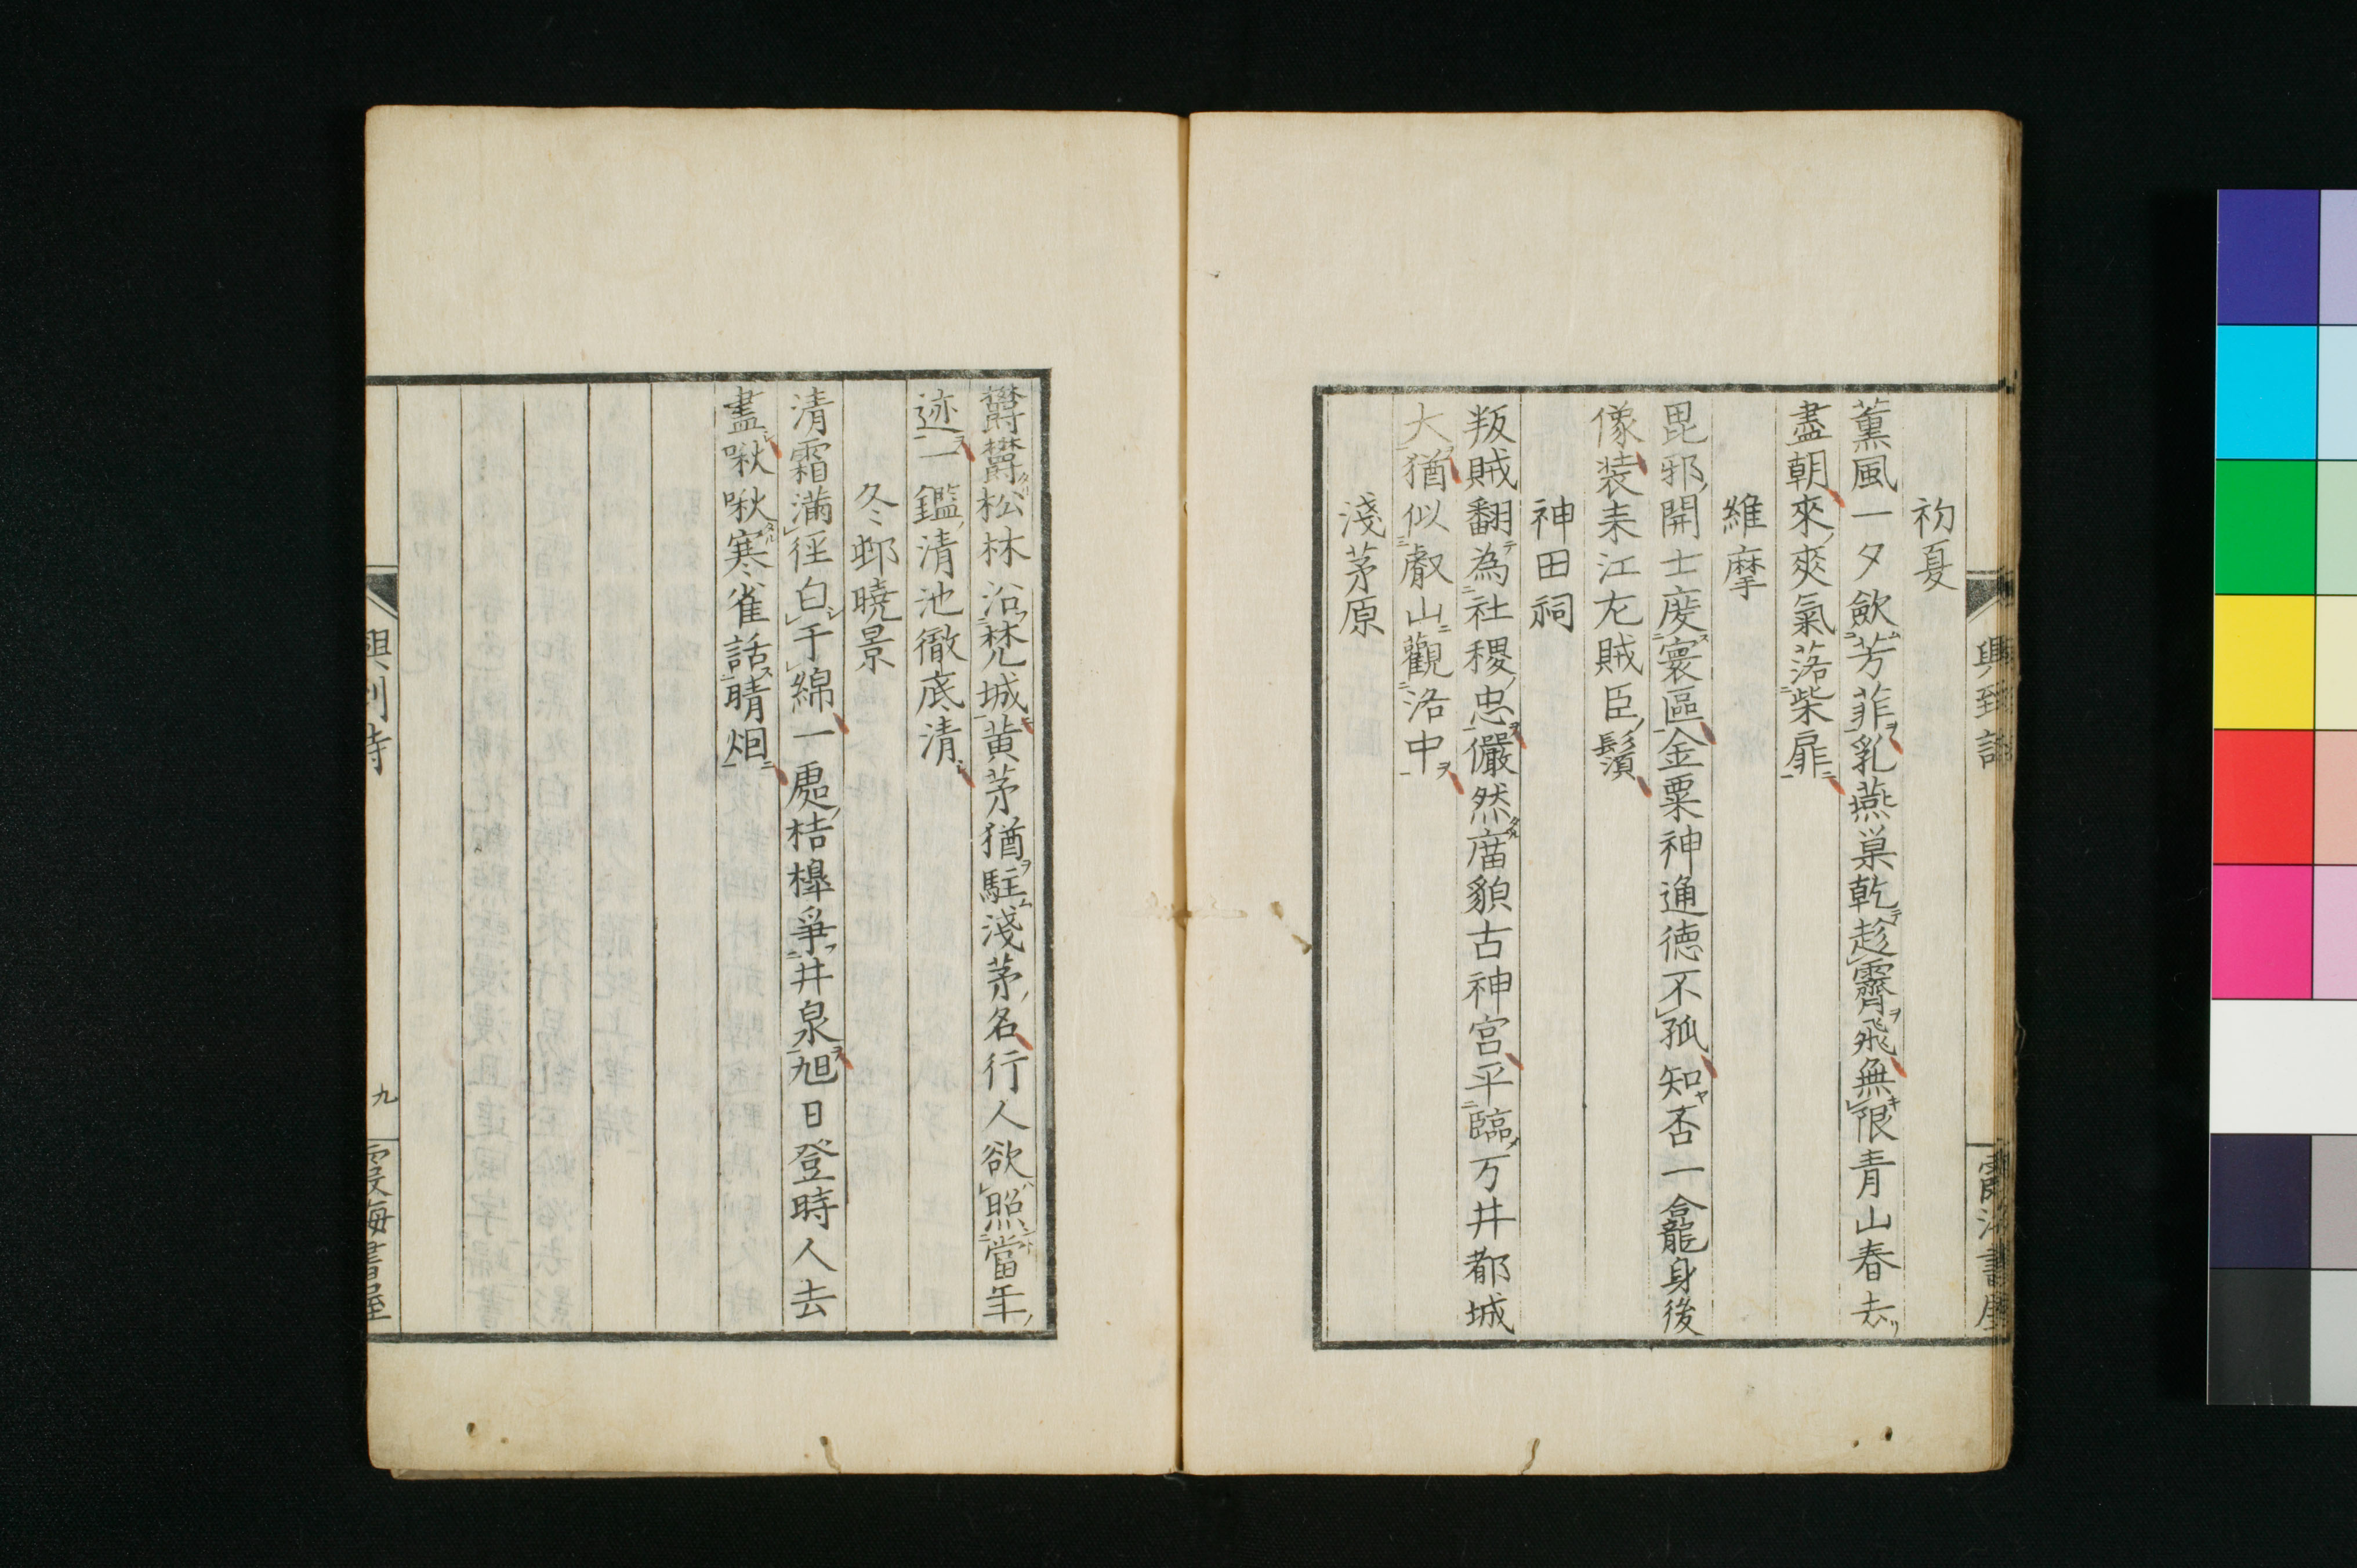 初夏
薫風一夕歛芳菲乳燕巣乾趁霽飛無限青山春去
盡朝來爽氣落柴扉
維摩
毘邪開士度寰區金粟神通徳不孤知否一龕身後
像装耒江左賊臣鬚
神田祠
叛賊翻為社稷忠儼然庿貌古神宮平臨万井都城
大猶似叡山觀洛中
淺茅原
欝欝松林沿梵城黄茅猶駐淺茅名行人欲照當年
迹一鑑清池徹底清
冬邨曉景
清霜満徑白于綿一處桔槹爭井泉旭日登時人去
盡啾啾寒雀話晴烟
九